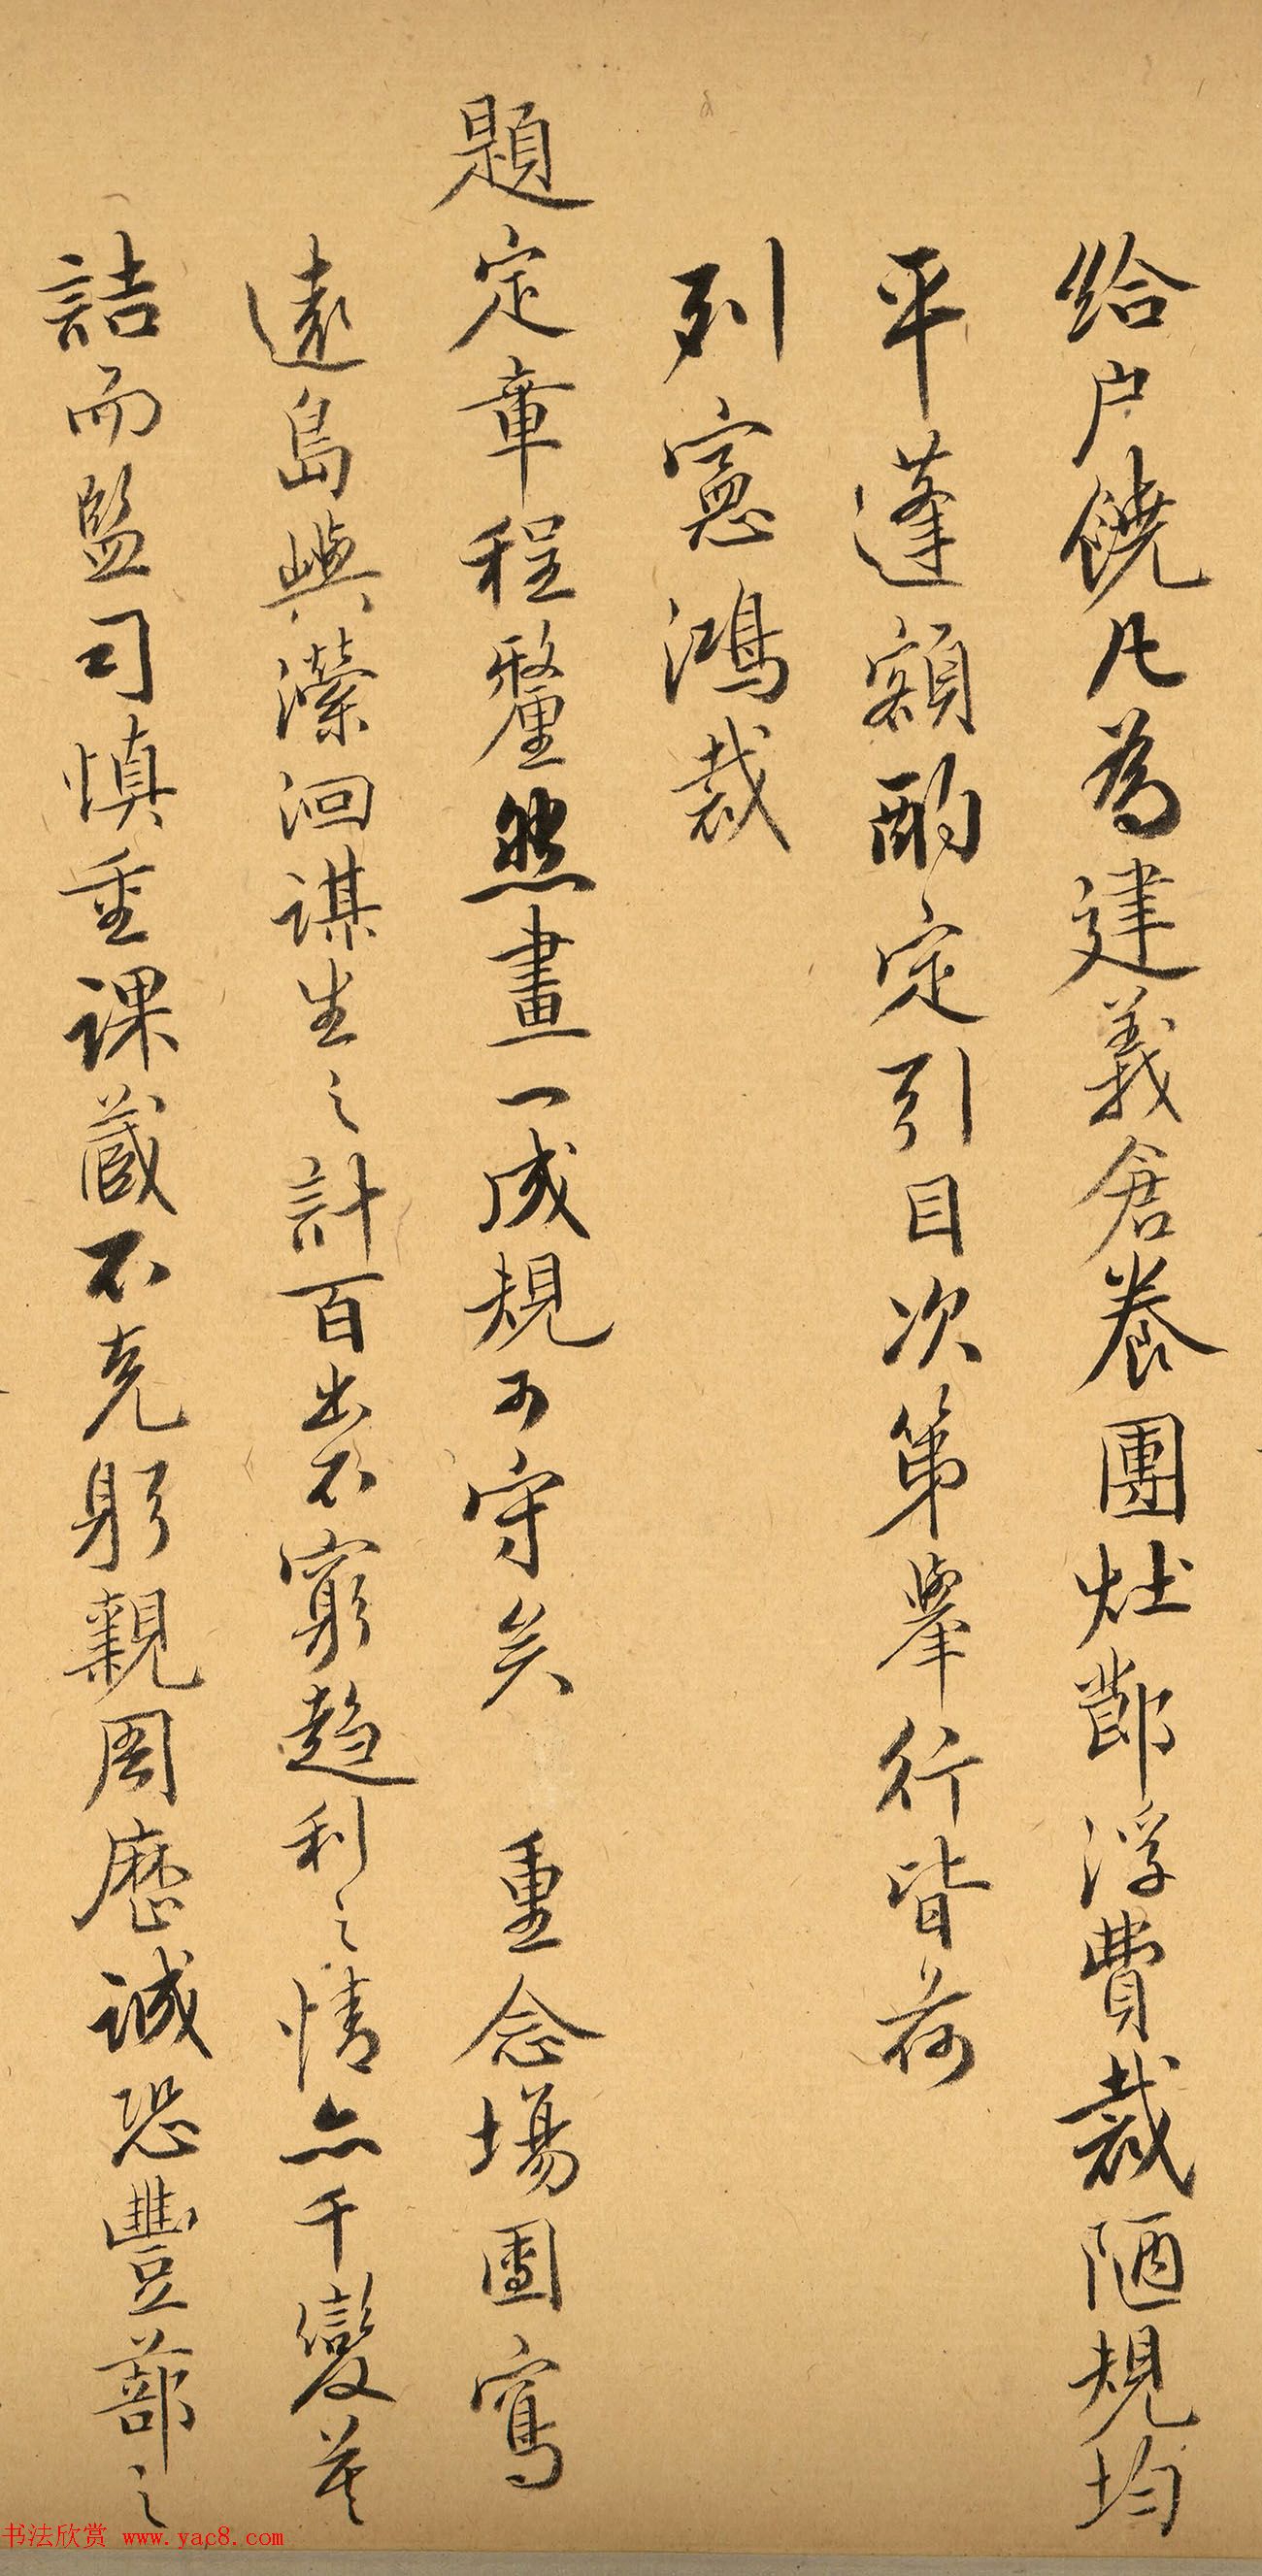 給户饒凡為建義倉養團灶鄼浮費裁陋規均
平蓬額酌定引目次第舉行皆荷
列憲鴻裁
題定章程釐然畫一成規可守矣 重念場團窵
遠島嶼瀠洄謀生之計百出不窮趨利之情亦千變莫
詰而監司慎重課蔵不克躬親周歷誠恐豐蔀之
书法欣赏 www.yac8.com